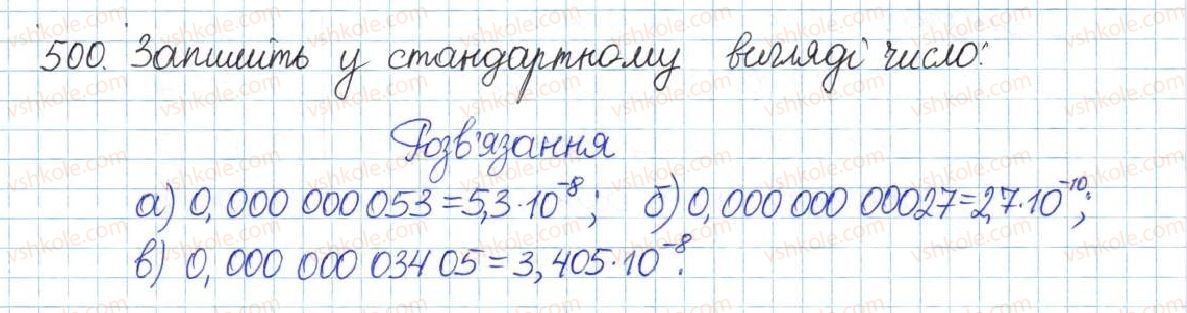 500. Запишіть у стандартному вигляді число:
Розв'язання
а) 0,000 000 053 = 5,3·10⁻⁸; б) 0,000 000 00027 = 2,7·10⁻¹⁰;
в) 0,000 000 03405 = 3,405·10⁻⁸.